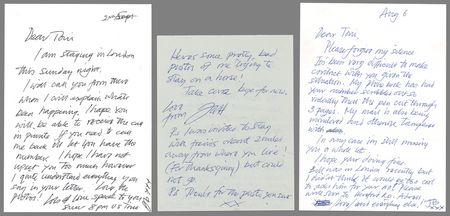 Dear Toni
I am staying in London
this Sunday night.
I will call you from there
when I will explain what's
been happening. I hope you
will be able to receive the call
in private. If you need to call
me back I'll let you have the
number. I hope I have not
upset you too much however
I quite understand everything you
say in your letter. Love the
photos! Lots of love speak to you
Sun 8pm US Time
xxx
Heres some pretty bad
photos of me trying to
stay on a horse!
Take care bye for now.
Love
from
Ps I was invited to stay
with friends about 2 miles
away from where you live!
(for Thanksgiving) but could
not go.
Ps for the photo you sent
Aug 6
Dear Toni,
Please forgive my silence
Its been very difficult to make
contact with you given the
situation. My phone book has had
your number scribbled out so
violently that the pen cut through
3 pages. My mail is also being
monitored and otherwise tampered
with.
In any case im still missing
you a whole lot.
I hope your doing fine